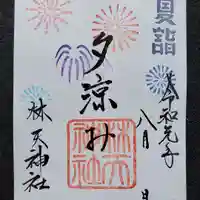 夏詣
令和元年
八月 日
夕涼み
林天神社
林天神社